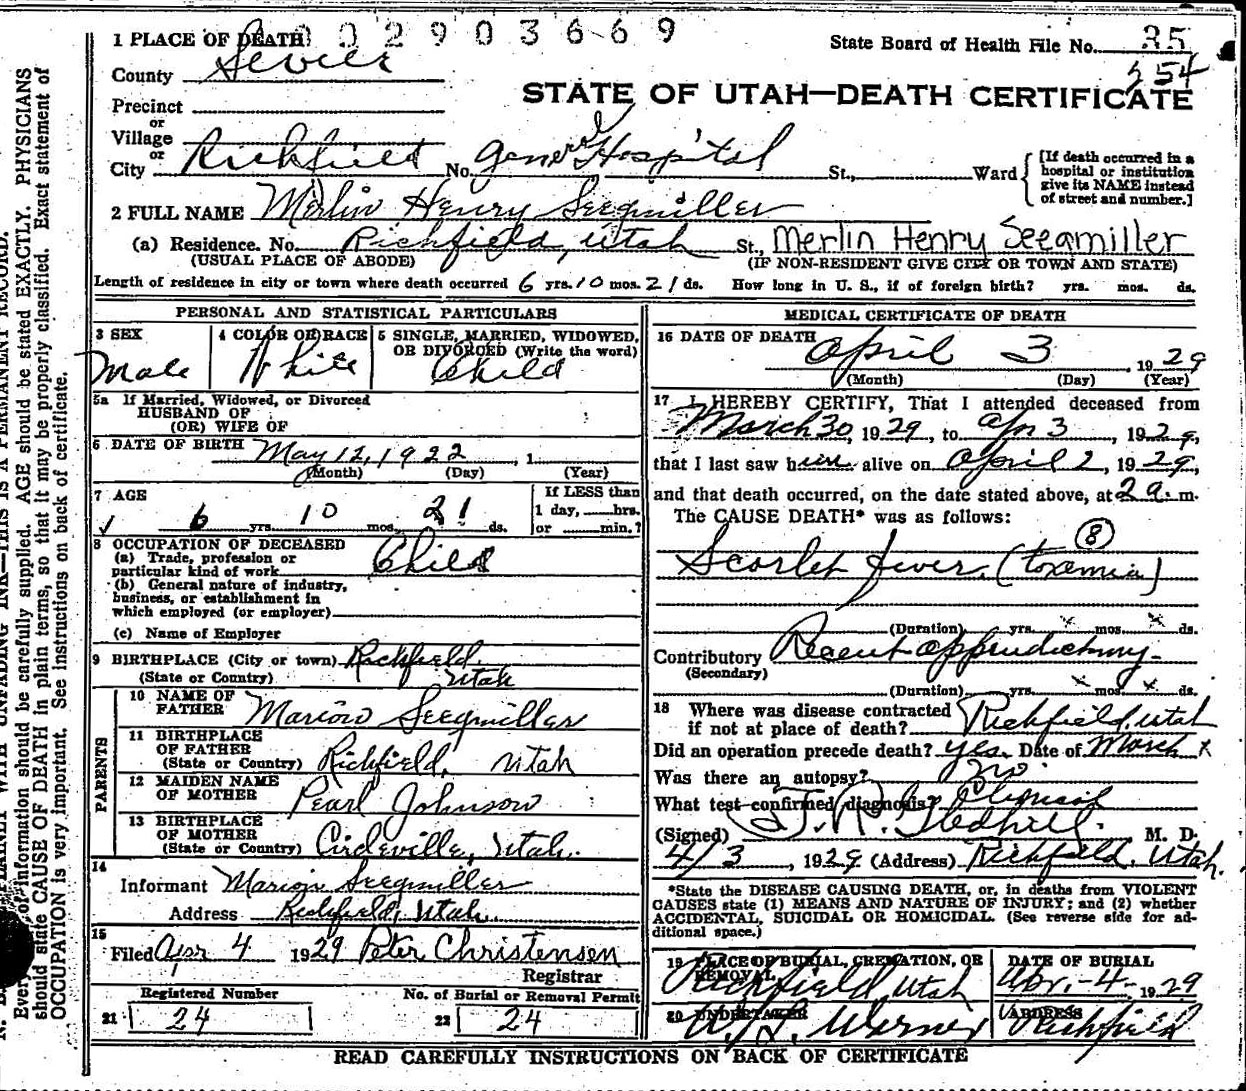 1 PLACE OF DEATH
0 2 9 0 3 6 6 9
State Board of Health File No. 35
254
County Sevier
STATE OF UTAH—DEATH CERTIFICATE
Precinct
or
Village
or
City Richfield No. General Hospital St., Ward
[If death occurred in a hospital or institution give its NAME instead of street and number.]
2 FULL NAME Merlin Henry Seegmiller
(a) Residence. No. Richfield, Utah St., Merlin Henry Seegmiller
(USUAL PLACE OF ABODE) (IF NON-RESIDENT GIVE CITY OR TOWN AND STATE)
Length of residence in city or town where death occurred 6 yrs. 10 mos. 21 ds. How long in U. S., if of foreign birth? yrs. mos. ds.
PERSONAL AND STATISTICAL PARTICULARS
3 SEX
Male
4 COLOR OR RACE
White
5 SINGLE, MARRIED, WIDOWED,
OR DIVORCED (Write the word)
Child
5a If Married, Widowed, or Divorced
HUSBAND OF
(OR) WIFE OF
6 DATE OF BIRTH May 12, 1922, 1
(Month) (Day) (Year)
7 AGE
6 yrs. 10 mos. 21 ds.
If LESS than
1 day, hrs.
or min.?
8 OCCUPATION OF DECEASED
(a) Trade, profession or
particular kind of work Child
(b) General nature of industry,
business, or establishment in
which employed (or employer)
(c) Name of Employer
9 BIRTHPLACE (City or town) Richfield
(State or Country) Utah
PARENTS
10 NAME OF
FATHER Marion Seegmiller
11 BIRTHPLACE
OF FATHER
(State or Country) Richfield, Utah
12 MAIDEN NAME
OF MOTHER Pearl Johnson
13 BIRTHPLACE
OF MOTHER
(State or Country) Circleville, Utah.
14
Informant Marion Seegmiller
Address Richfield, Utah.
15
Filed Apr 4 1929 Peter Christensen
Registrar
Registered Number
21 24
No. of Burial or Removal Permit
22 24
MEDICAL CERTIFICATE OF DEATH
16 DATE OF DEATH
April 3, 1929
(Month) (Day) (Year)
17 I HEREBY CERTIFY, That I attended deceased from
March 30, 1929, to Apr 3, 1929,
that I last saw him alive on April 2, 1929,
and that death occurred, on the date stated above, at 2 a. m.
The CAUSE DEATH* was as follows:
8
Scarlet fever. (toxemia)
(Duration) yrs. x mos. x ds.
Contributory Recent appendictmy
(Secondary)
(Duration) yrs. x mos. x ds.
18 Where was disease contracted
if not at place of death? Richfield, Utah
Did an operation precede death? yes. Date of March x
Was there an autopsy? no.
What test confirmed diagnosis? Clinical
(Signed) T. R. Gledhill. M. D.
4/3, 1929 (Address) Richfield, Utah.
*State the DISEASE CAUSING DEATH, or, in deaths from VIOLENT
CAUSES state (1) MEANS AND NATURE OF INJURY; and (2) whether
ACCIDENTAL, SUICIDAL OR HOMICIDAL. (See reverse side for ad-
ditional space.)
19 PLACE OF BURIAL, CREMATION, OR
REMOVAL
Richfield Utah
DATE OF BURIAL
Apr. - 4 - 1929
20 UNDERTAKER
Werner
ADDRESS
Richfield
READ CAREFULLY INSTRUCTIONS ON BACK OF CERTIFICATE
WITH UNFADING INK—THIS IS A PERMANENT RECORD.
Every item of information should be carefully supplied. AGE should be stated EXACTLY. PHYSICIANS
should state CAUSE OF DEATH in plain terms, so that it may be properly classified. Exact statement of
OCCUPATION is very important. See instructions on back of certificate.